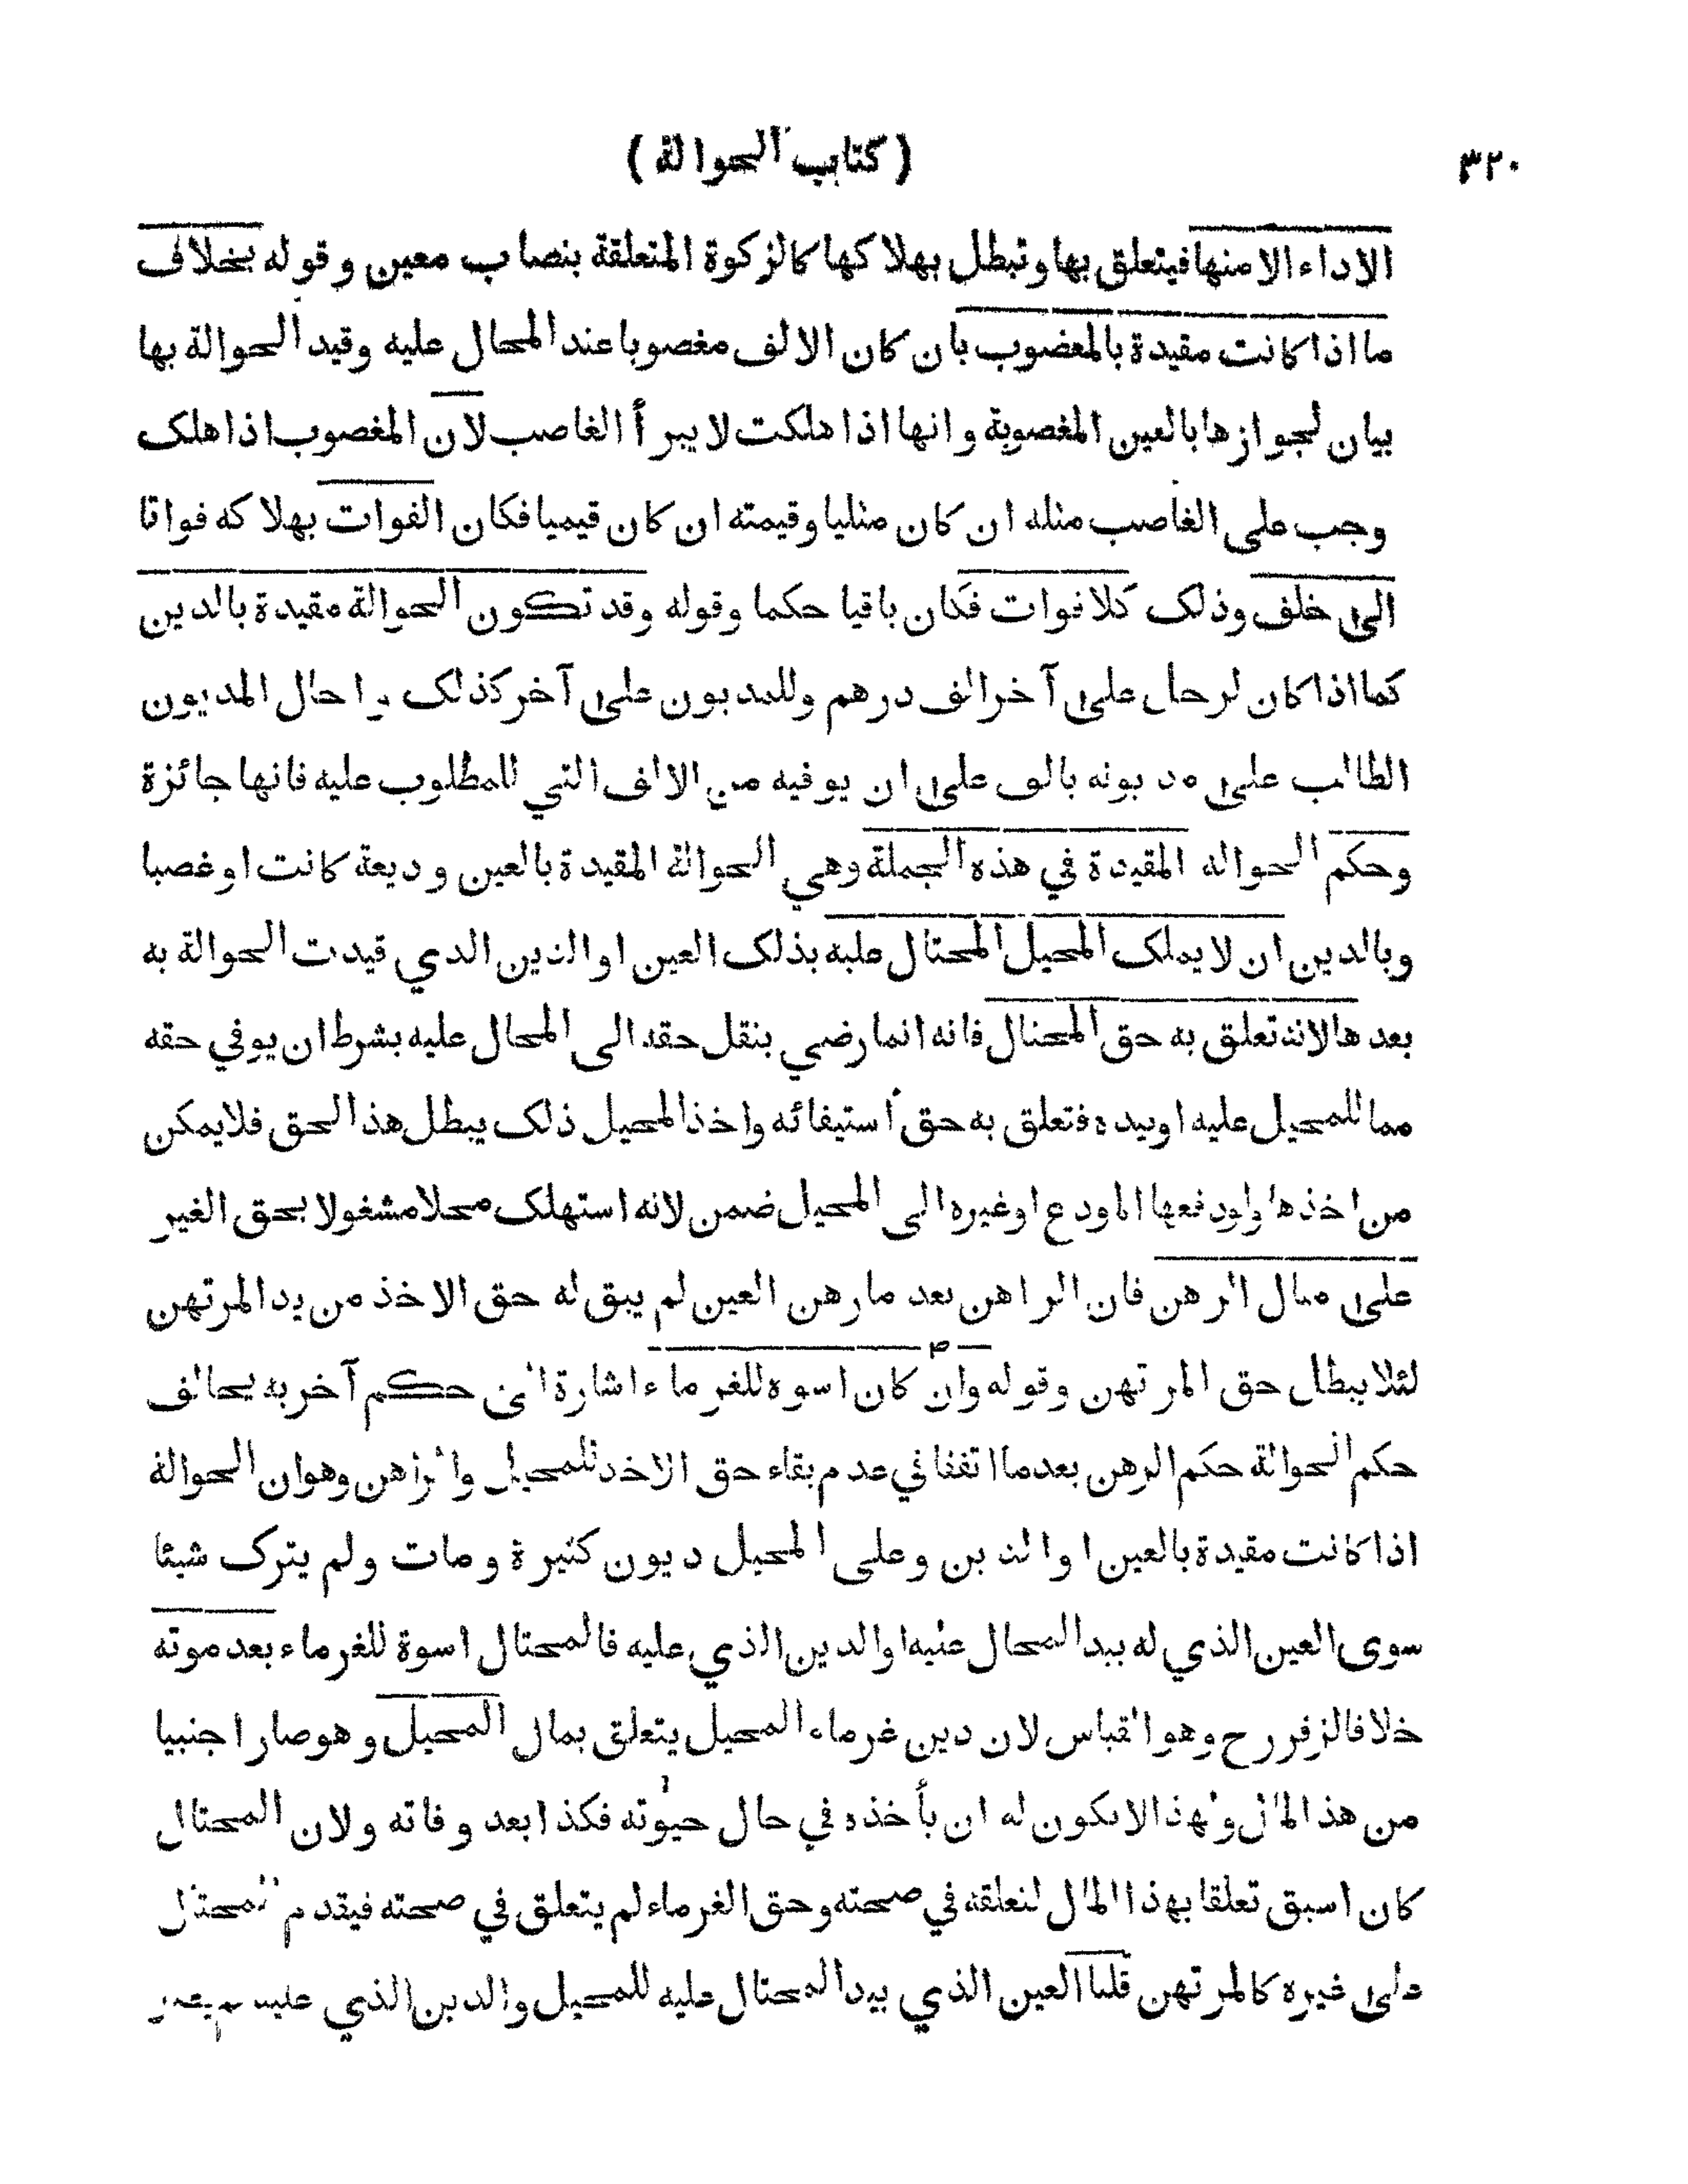 ٣٢٠
( كتاب الحوالة )
الاداء الا منها فيتعلق بها وتبطل بهلاكها كالزكوة المتعلقة بنصاب معين وقوله بخلاف
ما اذا كانت مقيدة بالمغضوب بان كان الالف مغصوبا عند المحال عليه وقيد الحوالة بها
بيان لجوازها بالعين المغصوبة وانها اذا هلكت لا يبرأ الغاصب لان المغصوب اذا هلك
وجب على الغاصب مثله ان كان مثليا وقيمته ان كان قيميا فكان الفوات بهلاكه فواتا
الى خلف وذلك كلا فوات فكان باقيا حكما وقوله وقد تكون الحوالة مقيدة بالدين
كما اذا كان لرجل على آخر الف درهم وللمديون على آخر كذلك واحال المديون
الطالب على مديونه بالف على ان يوفيه من الالف التي للمطلوب عليه فانها جائزة
وحكم الحواله المقيدة في هذه الجملة وهي الحوالة المقيدة بالعين وديعة كانت او غصبا
وبالدين ان لا يملك المحيل المحتال عليه بذلك العين او الدين الذي قيدت الحوالة به
بعدها لانه تعلق به حق المحتال فانه انما رضي بنقل حقه الى المحال عليه بشرط ان يوفي حقه
مما للمحيل عليه او بيده فتعلق به حق استيفائه واخذ المحيل ذلك يبطل هذا الحق فلا يمكن
من اخذها ولو دفعها المودع او غيره الى المحيل ضمن لانه استهلك محلا مشغولا بحق الغير
على مثال الرهن فان الراهن بعد ما رهن العين لم يبق له حق الاخذ من يد المرتهن
لئلا يبطل حق المرتهن وقوله وان كان اسوه للغرماء اشارة الى حكم آخر به يخالف
حكم الحوالة حكم الرهن بعد ما اتفقا في عدم بقاء حق الاخذ للمحيل والراهن وهو ان الحوالة
اذا كانت مقيدة بالعين او الدين وعلى المحيل ديون كثيرة ومات ولم يترك شيئا
سوى العين الذي له بيد المحال عليه او الدين الذي عليه فالمحتال اسوة للغرماء بعد موته
خلافا لزفر رح وهو القياس لان دين غرماء المحيل يتعلق بمال المحيل وهو صار اجنبيا
من هذا المال ولهذا لا يكون له ان يأخذه في حال حيوته فكذا بعد وفاته ولان المحتال
كان اسبق تعلقا بهذا المال لتعلقه في صحته وحق الغرماء لم يتعلق في صحته فيقدم المحتال
على غيره كالمرتهن قلنا العين الذي بيد المحتال عليه للمحيل والدين الذي عليه لم يصر